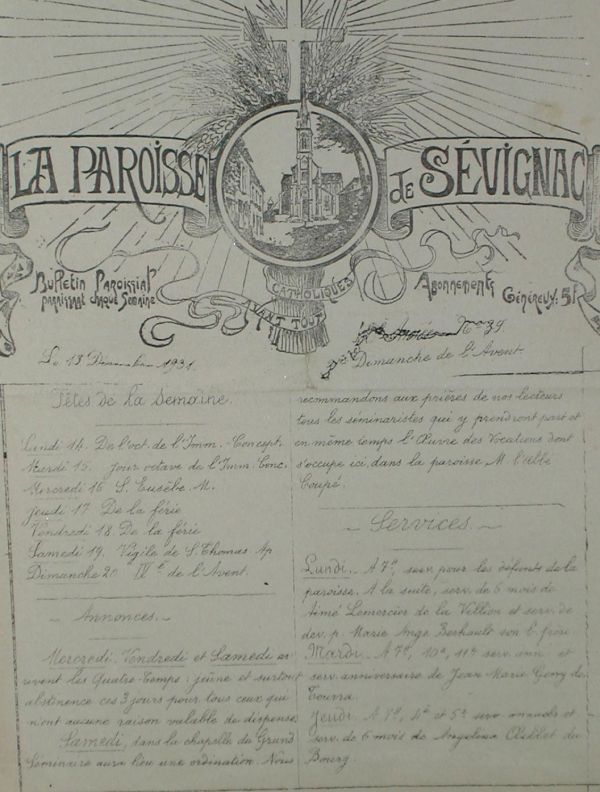 LA PAROISSE
DE SÉVIGNAC
CATHOLIQUES
AVANT TOUT
Bulletin Paroissial
paraissant chaque Semaine
Abonnements
Généreux: 5f
Le 13 Décembre 1931
No 39
Dimanche de l'Avent.
Fêtes de la Semaine
Lundi 14. De l'oct. de l'Imm. Concept.
Mardi 15. jour octave de l'Imm. Conc.
Mercredi 16 S. Eusèbe. M.
Jeudi 17 De la férie
Vendredi 18. De la férie
Samedi 19. Vigile de S. Thomas Ap
Dimanche 20 IVe de l'Avent.
- Annonces. -
Mercredi, Vendredi et Samedi ar
rivent les Quatre-Temps: jeûne et surtout
abstinence ces 3 jours pour tous ceux qui
n'ont aucune raison valable de dispense
Samedi, dans la chapelle du Grand
Séminaire aura lieu une ordination. Nous
recommandons aux prières de nos lecteurs
tous les séminaristes qui y prendront part et
en même temps l'Œuvre des Vocations dont
s'occupe ici, dans la paroisse M. l'abbé
Coupé.
- Services. -
Lundi. A 7h, serv. pour les défunts de la
paroisse. A la suite, serv. de 6 mois de
Aimé Lemercier de la Ville et serv. de
dev. p. Marie Ange Berhault son b. frère
Mardi. A 7h, 10e, 11e serv. ann. et
serv. anniversaire de Jean Marie Gouy de
Jeudi. A 7h, 4e et 5e serv. annuels et
serv. de 6 mois de du
Bourg.